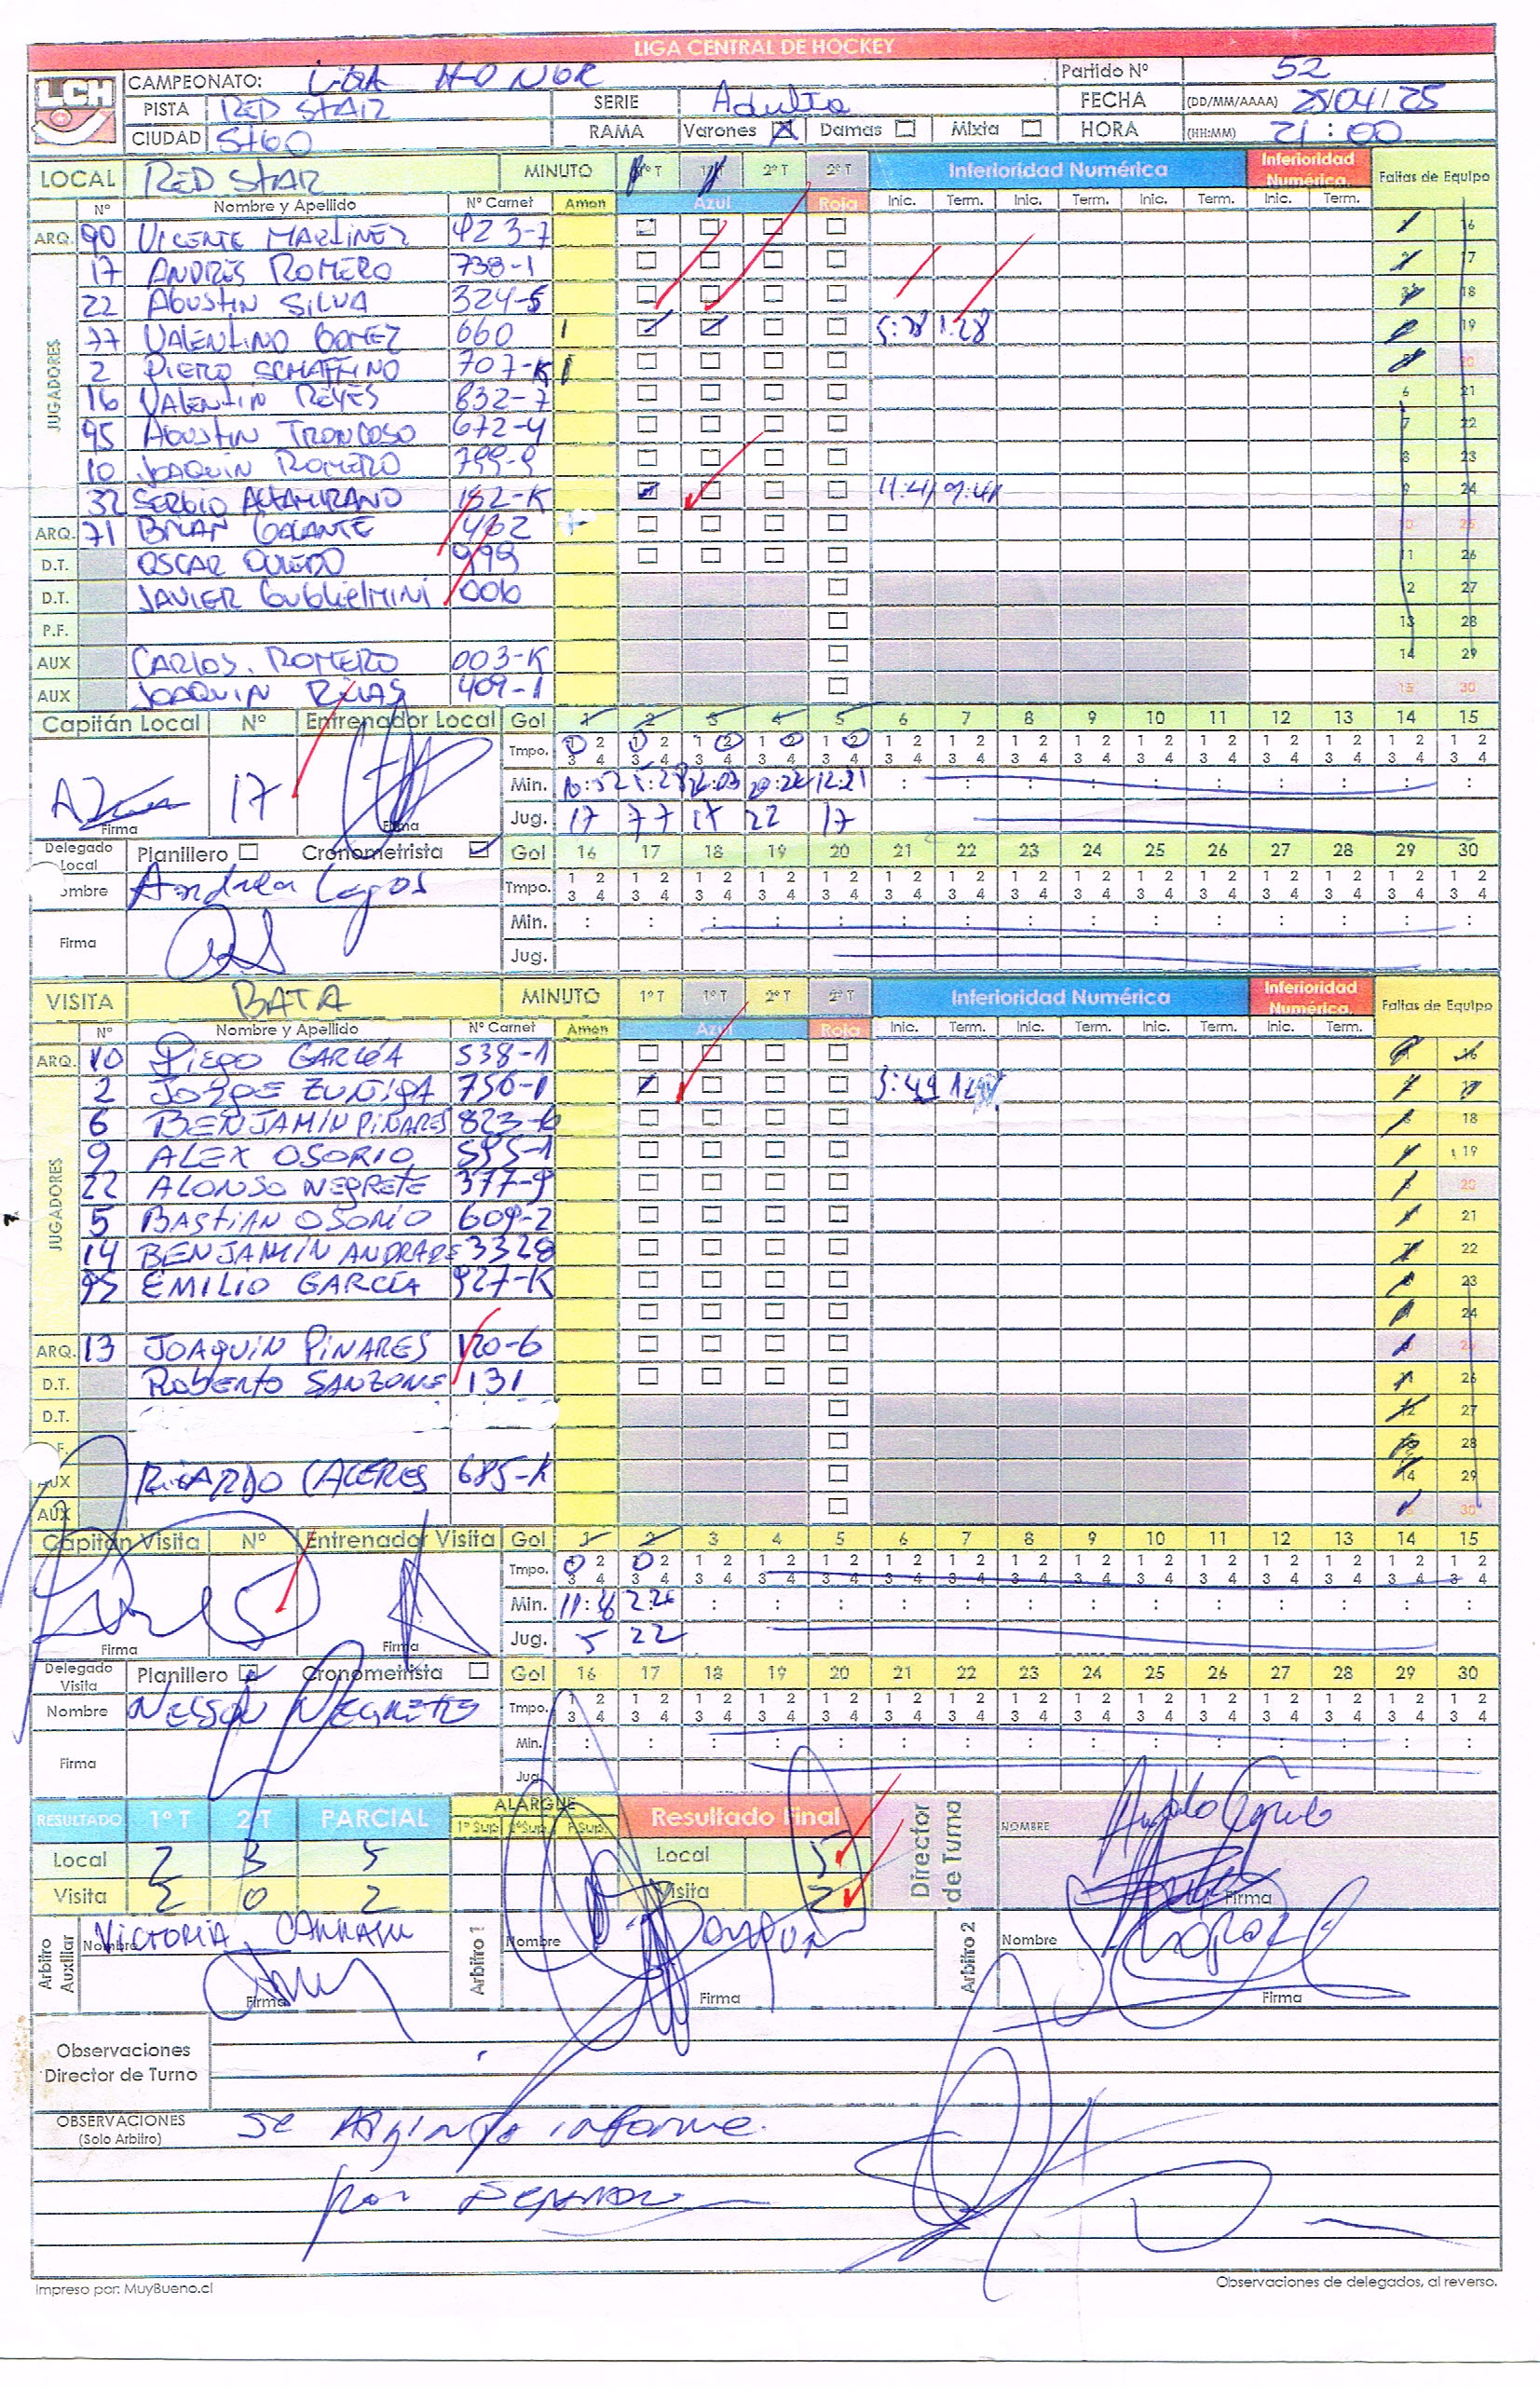 LIGA CENTRAL DE HOCKEY
LCH CAMPEONATO: LIGA HONOR Partido Nº 52
PISTA RED STAR SERIE Adulto FECHA (DD/MM/AAAA) 25/04/25
CIUDAD STGO RAMA Varones Damas Mixta HORA (HH:MM) 21:00
LOCAL RED STAR MINUTO 1º T 1º T 2º T 2º T Inferioridad Numérica Inferioridad Numérica. Faltas de Equipo
Nº Nombre y Apellido Nº Carnet Amon Azul Roja Inic. Term. Inic. Term. Inic. Term. Inic. Term.
ARQ. 90 VICENTE MARTINEZ 423-7 1 16
JUGADORES
17 ANDRÉS ROMERO 738-1 2 17
22 AGUSTIN SILVA 324-5 3 18
77 VALENTINO GOMEZ 660 1 5:28 1:28 19
2 PIERO SCHIAFFINO 707-K 1 20
16 VALENTIN REYES 832-7 6 21
95 AGUSTIN TRONCOSO 672-4 7 22
10 JOAQUIN ROMERO 799-9 8 23
32 SERGIO ALTAMIRANO 152-K 11:41 9:41 9 24
ARQ. 71 BRIAN GALANTE 462 10 25
D.T. OSCAR OVIEDO 999 11 26
D.T. JAVIER GUGLIELMINI 006 12 27
P.F. 13 28
AUX CARLOS. ROMERO 003-K 14 29
AUX JOAQUIN RIVAS 409-1 15 30
Capitán Local Nº Entrenador Local Gol 1 2 3 4 5 6 7 8 9 10 11 12 13 14 15
Tmpo. 1 2 3 4 1 2 3 4 1 2 3 4 1 2 3 4 1 2 3 4 1 2 3 4 1 2 3 4 1 2 3 4 1 2 3 4 1 2 3 4 1 2 3 4 1 2 3 4 1 2 3 4 1 2 3 4 1 2 3 4
17 Min. 5:28 12:21
Firma Firma Jug. 17 77 17 22 17
Delegado Local Planillero Cronometrista Gol 16 17 18 19 20 21 22 23 24 25 26 27 28 29 30
Nombre Andrea Lagos Tmpo. 1 2 3 4 1 2 3 4 1 2 3 4 1 2 3 4 1 2 3 4 1 2 3 4 1 2 3 4 1 2 3 4 1 2 3 4 1 2 3 4 1 2 3 4 1 2 3 4 1 2 3 4 1 2 3 4 1 2 3 4
Firma Min. : : : : : : : : : : : : : : :
Jug.
VISITA BATA MINUTO 1º T 1º T 2º T 2º T Inferioridad Numérica Inferioridad Numérica. Faltas de Equipo
Nº Nombre y Apellido Nº Carnet Amon Azul Roja Inic. Term. Inic. Term. Inic. Term. Inic. Term.
ARQ. 10 DIEGO GARCÍA 538-1 16
JUGADORES
2 JORGE ZUÑIGA 756-1
6 BENJAMÍN PIÑARES 823-K 18
9 ALEX OSORIO 595-1 19
22 ALONSO NEGRETE 377-9 20
5 BASTIÁN OSORIO 609-2 21
14 BENJAMÍN ANDRADE 3328 7 22
95 EMILIO GARCÍA 927-K 23
24
ARQ. 13 JOAQUÍN PIÑARES 120-6 25
D.T. ROBERTO SANZONE 131 11 26
D.T. 12 27
28
AUX RICARDO CACERES 685-K 14 29
AUX 30
Capitán Visita Nº Entrenador Visita Gol 1 2 3 4 5 6 7 8 9 10 11 12 13 14 15
Tmpo. 1 2 3 4 1 2 3 4 1 2 3 4 1 2 3 4 1 2 3 4 1 2 3 4 1 2 3 4 1 2 3 4 1 2 3 4 1 2 3 4 1 2 3 4 1 2 3 4 1 2 3 4 1 2 3 4 1 2 3 4
Min. 2:26
Firma Firma Jug. 5 22
Delegado Visita Planillero Cronometrista Gol 16 17 18 19 20 21 22 23 24 25 26 27 28 29 30
Nombre NELSON NEGRETE Tmpo. 1 2 3 4 1 2 3 4 1 2 3 4 1 2 3 4 1 2 3 4 1 2 3 4 1 2 3 4 1 2 3 4 1 2 3 4 1 2 3 4 1 2 3 4 1 2 3 4 1 2 3 4 1 2 3 4 1 2 3 4
Firma Min. : : : : : : : : : : : : : : :
Jug.
RESULTADO 1º T 2º T PARCIAL ALARGUE 1º Sup. 2º Sup. P. Sup. Resultado Final Director de Turno NOMBRE
Local 2 3 5 Local 5
Visita 2 0 2 Visita 2 Firma
Arbitro Auxiliar Nombre VICTORIA Arbitro 1 Nombre Arbitro 2 Nombre
Firma Firma Firma
Observaciones
Director de Turno
OBSERVACIONES Se Adjunta informe.
(Solo Arbitro)
por separado
Impreso por: MuyBueno.cl Observaciones de delegados, al reverso.